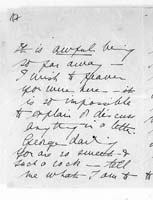 It is awful being
so far away —
I wish to heaven
you were here — it
is so impossible
to explain & discuss
anything in a letter
George darling
You are so sweet &
such a rock — tell
me what I am to